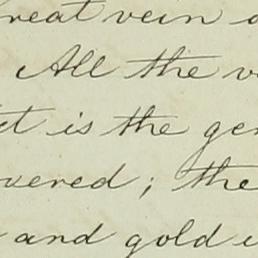 reat vein
All the
is the
vered; the
and gold